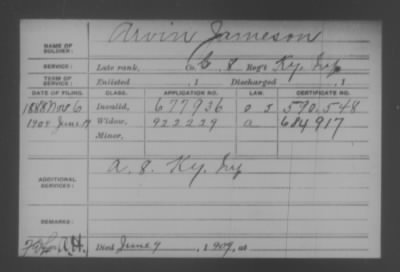 NAME OF SOLDIER: Arvin Jameson
SERVICE: Late rank, Co. G, 8 Reg't Ky. Inf
TERM OF SERVICE: Enlisted , 1 Discharged , 1
DATE OF FILING. CLASS. APPLICATION NO. LAW. CERTIFICATE NO.
1888 Nov 6 Invalid, 677936 570,548
1909 June 17 Widow, 922229 a 684917
Minor,
ADDITIONAL SERVICES: A. 8. Ky. Inf
REMARKS:
Died June 9, 1909, at